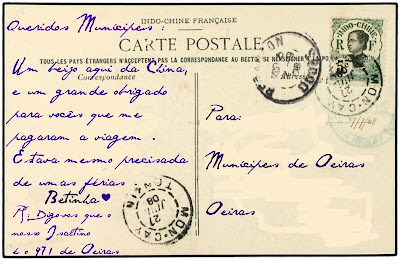 INDO-CHINE FRANÇAISE
CARTE POSTALE
TOUS LES PAYS ÉTRANGERS N'ACCEPTENT PAS LA CORRESPONDANCE AU RECTO, SE RENSEIGNER À LA
Correspondance
Adresse
Queridos Munícipes:
Um beijo aqui da China,
e um grande obrigado
para vocês que me
pagaram a viagem.
Estava mesmo precisada
de umas férias
Betinha
PS: Digovos que o
nosso Isaltino
é o 971 de Oeiras
INDO-CHINE
R F
MON-CAY
MON-CAY
TONKIN
21
JUIN
08
Para:
Munícipes de Oeiras
Oeiras